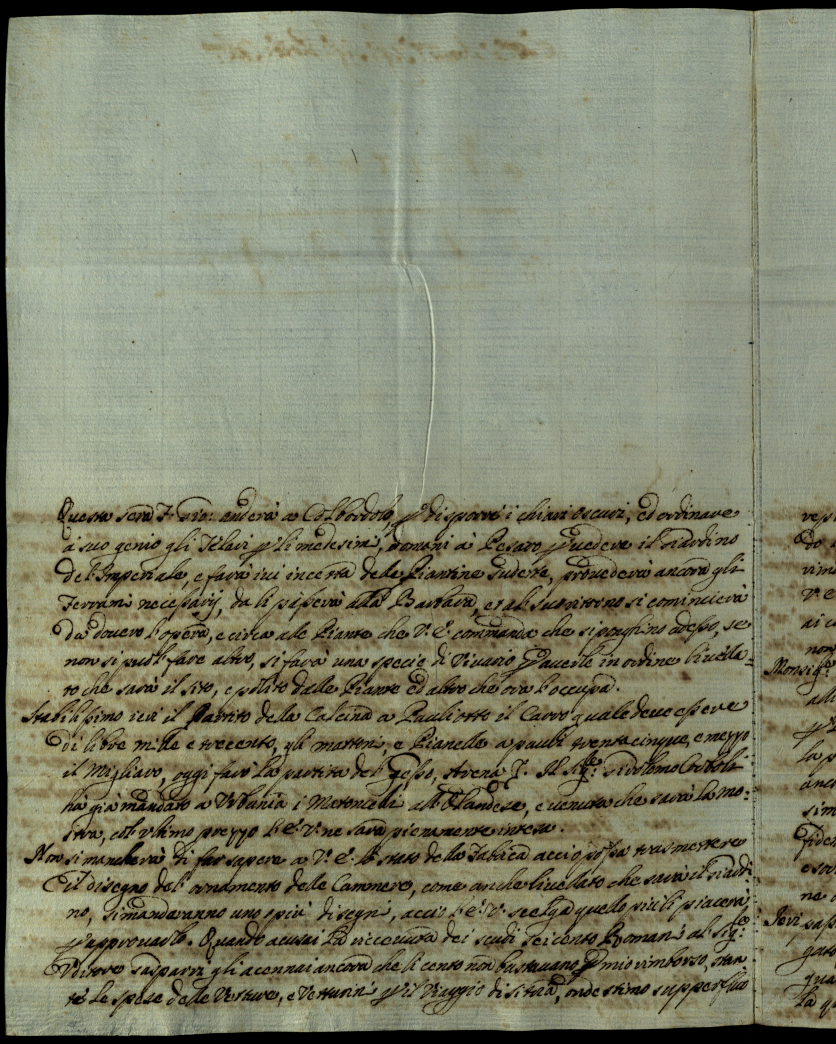 Questa sera F. Gio: anderà a Colbordolo p disporre i chiari oscuri, ed ordinare
à suo genio gli Telari p li medesimi, domani à Pesaro p vedere il Giardino
del Imperiale, e farà ivi incetta delle Piantine sudette, provederà ancora gli
Terrami necessarij, da li passerà alla Barbara, et al suo ritorno si comincierà
da dovero l'opera, e circa alle Piante che V.E. commanda che si ponghino adesso, se
non si può fare altro, si farà una specie di Vivario p averle in ordine livella=
to che sarà il sito, e polito dalle Piante ed altro che ora l'occupa.
Stabilissimo ieri il Partito della Calcina a Pauliotto il Carro quale deve essere
di libre mille e trecento, gli mattoni, e Pianelle a pauli trenta cinque, e mezzo
il Migliaro, oggi farò la partita del Gesso, Arena
hà già mandato a Urbania i Matoncelli all'Olandese, e venuta che sarà la mo=
stra, coll'ultimo prezzo V.E. ne sarà pienamente intesa.
Non si mancherà di far sapere a V.E. lo stato della Fabrica acciò possa trasmettere
il disegno del'ornamento delle Cammere, come anche livellato che sarà il Giardi
no, si manderanno uno o più disegni, acciò V.E. scelga quello più li piacerà,
p approvarlo. Quando acusai la ricevuta dei scudi seicento Romani al Sig.e
Uditore Gasparri gli acennai ancora che li cento non bastavano p mio rimborso, stan
te le spese delle Vetture, e Vetturini p il Viaggio di sitria, onde stimo supperfluo
Monsig.r